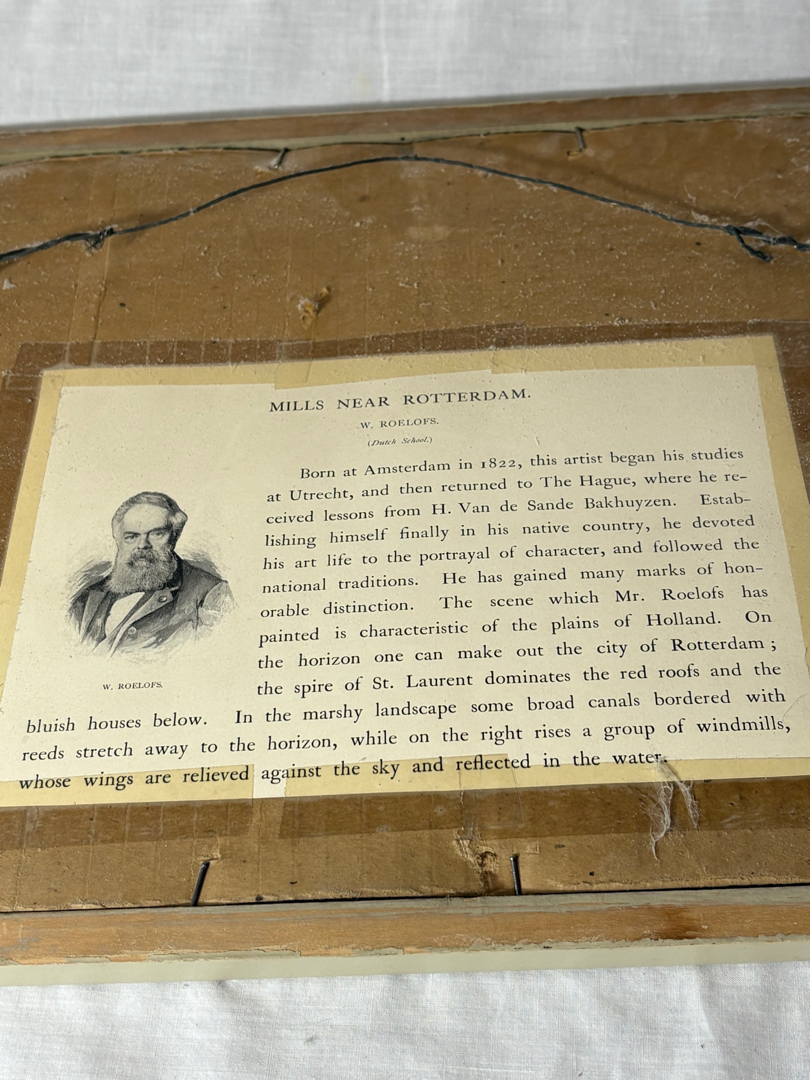 MILLS NEAR ROTTERDAM.
W. ROELOFS.
(Dutch School.)
Born at Amsterdam in 1822, this artist began his studies
at Utrecht, and then returned to The Hague, where he re-
ceived lessons from H. Van de Sande Bakhuyzen. Estab-
lishing himself finally in his native country, he devoted
his art life to the portrayal of character, and followed the
national traditions. He has gained many marks of hon-
orable distinction. The scene which Mr. Roelofs has
painted is characteristic of the plains of Holland. On
the horizon one can make out the city of Rotterdam;
the spire of St. Laurent dominates the red roofs and the
bluish houses below. In the marshy landscape some broad canals bordered with
reeds stretch away to the horizon, while on the right rises a group of windmills,
whose wings are relieved against the sky and reflected in the water.
W. ROELOFS.